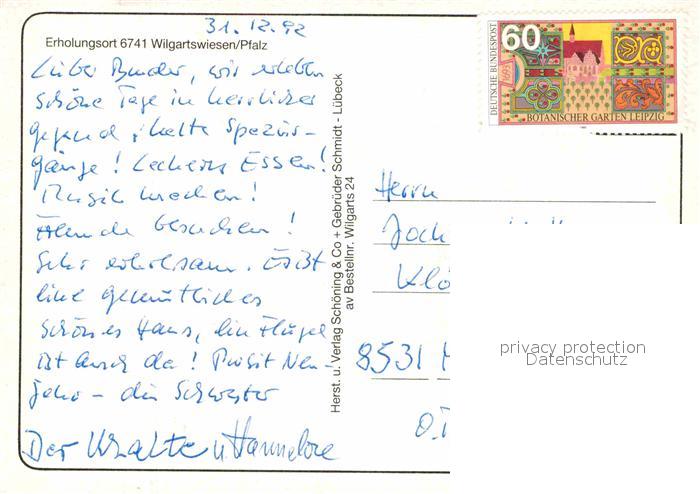 31.12.92
Erholungsort 6741 Wilgartswiesen/Pfalz
Lieber Bruder, wir erleben
schöne Tage in herrlicher
Gegend, kalte Spazier-
gänge! Leckeres Essen!
Musik machen!
Freunde besuchen!
Sehr erholsam. Es ist
ein gemütliches
schönes Haus, ein Flügel
ist auch da! Prosit Neu-
jahr - die Schwester
Der Uralte u. Hannelore
Herst. u. Verlag Schöning & Co + Gebrüder Schmidt - Lübeck
av Bestellnr. Wilgarts 24
DEUTSCHE BUNDESPOST
60
BOTANISCHER GARTEN LEIPZIG
Herrn
Joch
Klö
8531
privacy protection
Datenschutz